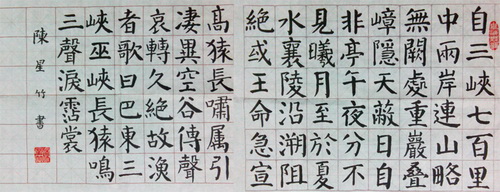 自三峽七百里
中兩岸連山略
無闕處重巖疊
嶂隱天蔽日自
非亭午夜分不
見曦月至於夏
水襄陵沿溯阻
絕或王命急宣
髙猿長嘯属引
凄異空谷傳聲
哀轉久絕故漁
者歌曰巴東三
峽巫峽長猿鳴
三聲淚霑裳
陳星竹書